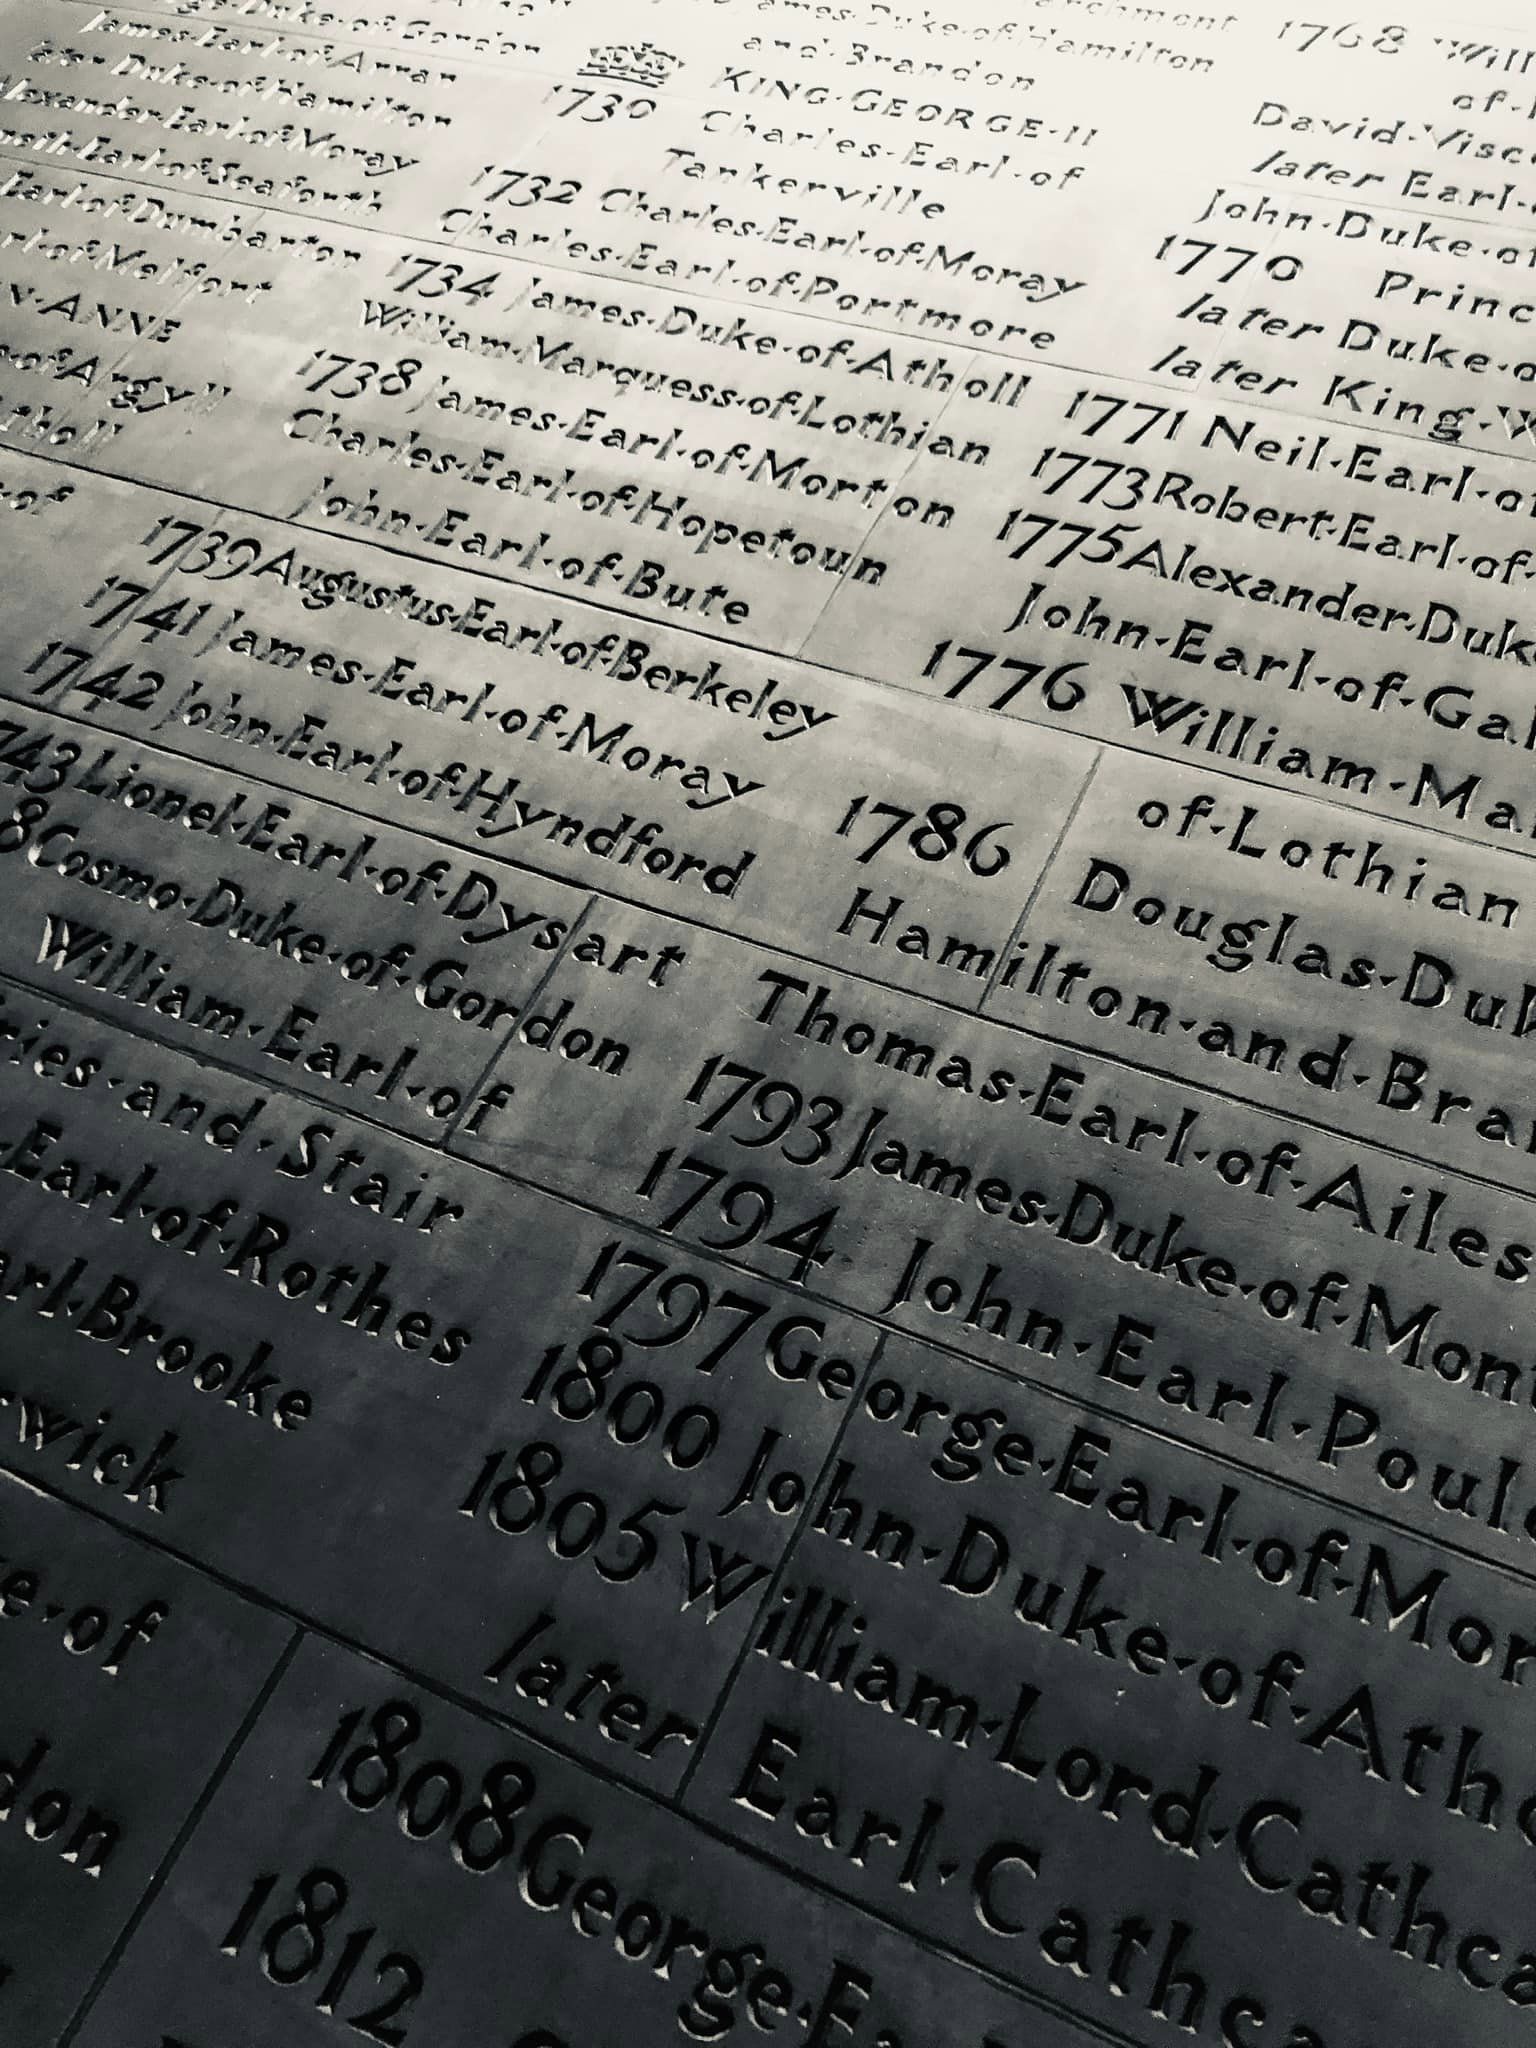 Duke·of·Gordon
James·Earl·of·Arran
later Duke·of·Hamilton
Alexander·Earl·of·Moray
Earl·of·Seaforth
Earl·of·Dumbarton
Earl·of·Melfort
ANNE
of·Argyll
of
James·Duke·of·Hamilton
and·Brandon
KING·GEORGE·II
1730 Charles·Earl·of
Tankerville
1732 Charles·Earl·of·Moray
Charles·Earl·of·Portmore
1734 James·Duke·of·Atholl
William·Marquess·of·Lothian
1738 James·Earl·of·Morton
Charles·Earl·of·Hopetoun
John·Earl·of·Bute
1739 Augustus·Earl·of·Berkeley
1741 James·Earl·of·Moray
1742 John·Earl·of·Hyndford
743 Lionel·Earl·of·Dysart
8 Cosmo·Duke·of·Gordon
William·Earl·of
ries·and·Stair
Earl·of·Rothes
arl·Brooke
wick
e·of
don
1768 Will
of
David·Visc
later Earl
John·Duke·of
1770 Princ
later Duke
later King·W
1771 Neil·Earl·of
1773 Robert·Earl·of
1775 Alexander·Duk
John·Earl·of·Gal
1776 William·Ma
of·Lothian
1786 Douglas·Du
Hamilton·and·Bra
Thomas·Earl·of·Ailes
1793 James·Duke·of·Mon
1794 John·Earl·Poul
1797 George·Earl·of·Mor
1800 John·Duke·of·Ath
1805 William·Lord·Cathca
later Earl·Cathc
1808 George·Ea
1812